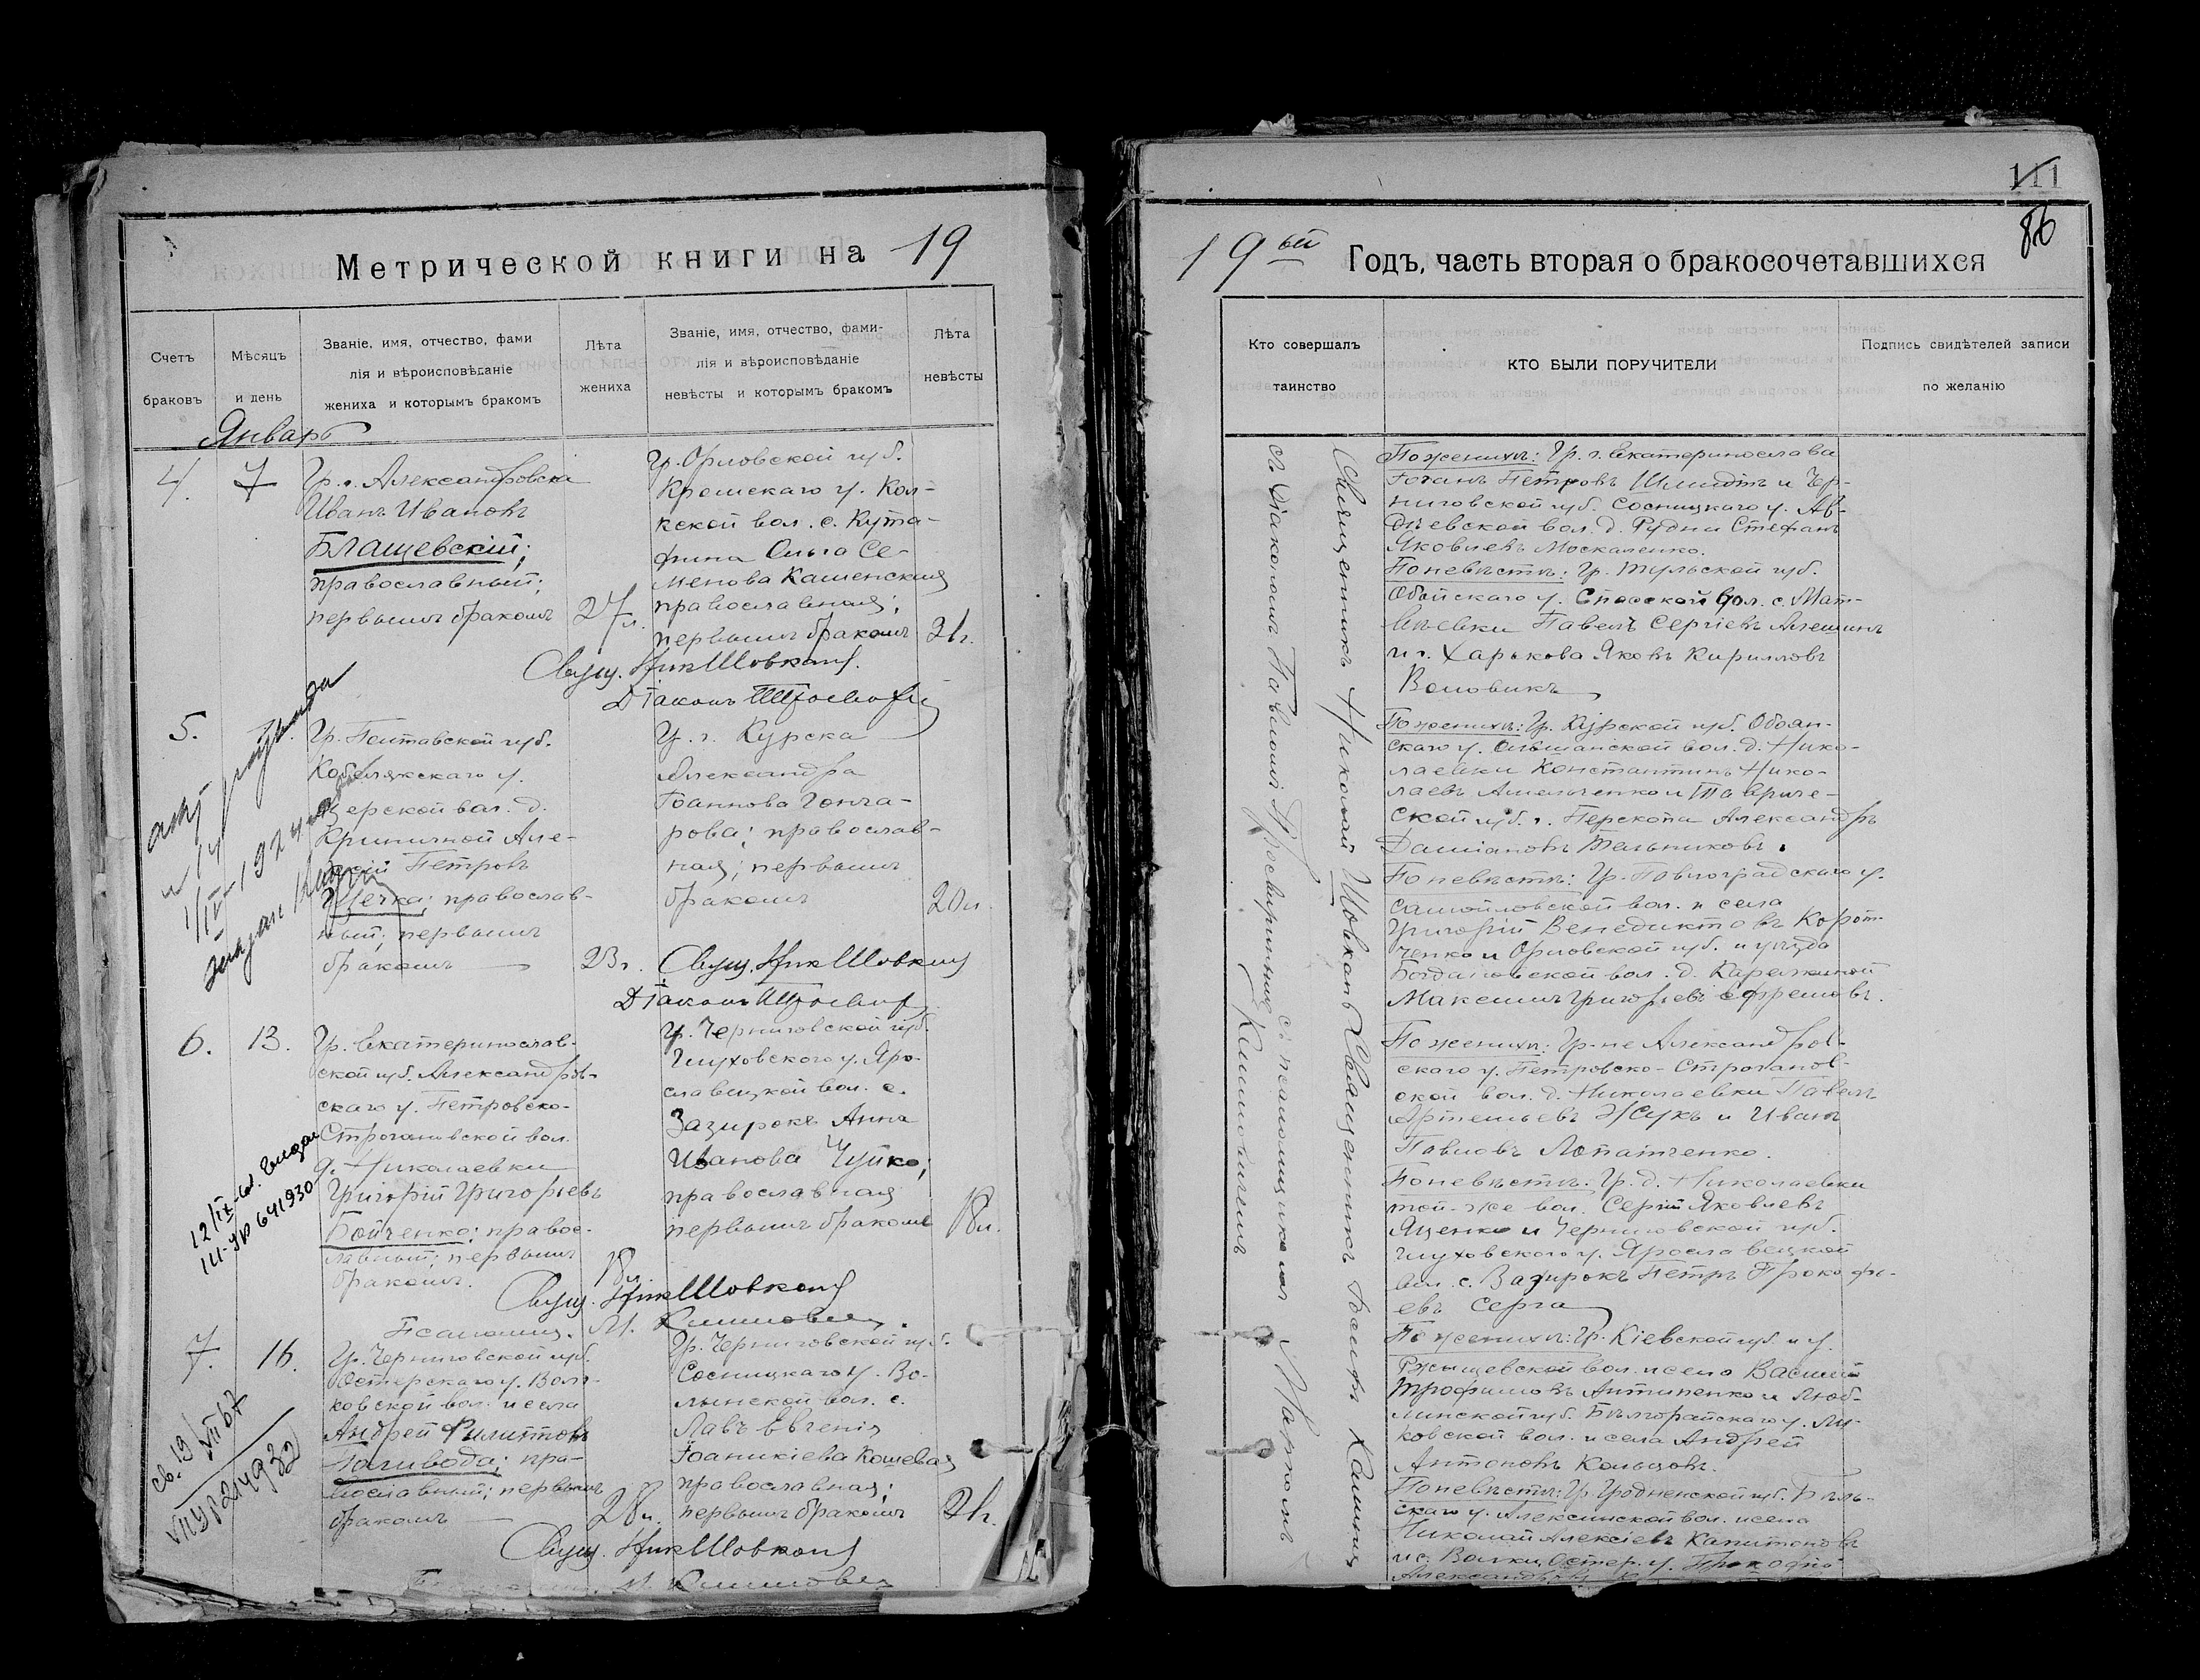 Метрической книги на 19
Счетъ браковъ
Мѣсяцъ и день
Званіе, имя, отчество, фами
лія и вѣроисповѣданіе
жениха и которымъ бракомъ
Лѣта жениха
Званіе, имя, отчество, фами-
лія и вѣроисповѣданіе
невѣсты и которымъ бракомъ
Лѣта невѣсты
Январь
4.
7
Гр. г. Александровска
Иванъ Ивановъ
Блащевскій;
православный;
первымъ бракомъ
27 л.
Гр. Орловской губ.
Кромскаго у. Кол-
кской вол. с. Кута-
фина Ольга Се-
менова Каменская
православная;
первымъ бракомъ
21 г.
Свящ. Ник Шовкопл
Діаконъ
5.
Гр. Полтавской губ.
Кобелякскаго у.
вол. д.
Криничной Але-
ксѣй Петровъ
православ-
ный; первымъ
бракомъ
23 г.
Гр. г. Курска
Александра
Іоаннова Гонча-
рова; православ-
ная; первымъ
бракомъ
20 л.
Свящ. Ник Шовкопл
Діаконъ
1924
6.
13.
Гр. Екатеринослав-
ской губ. Александров-
скаго у. Петровско-
Строгановской вол.
д. Николаевки
Григорій Григорьевъ
Бойченко; правос-
лавный; первымъ
бракомъ.
18 л.
Гр. Черниговской губ.
Глуховского у. Яро-
славецкой вол. с.
Зазирокъ Анна
Иванова Чуйко;
православная
первымъ бракомъ
18 л.
Свящ. Ник Шовкопл
Псаломщ. М. Климович
12/IX
641930
7.
16.
Гр. Черниговской губ.
Остерскаго у. Волч-
ковской вол. и села
Андрей Филипповъ
Паливода; пра-
вославный; первымъ
бракомъ
28 л.
Гр. Черниговской губ.
Сосницкаго у. Во-
лынской вол. с.
Лавъ Евгенія
Іоаникіева Кошевая
православная;
первымъ бракомъ
21 г.
Свящ. Ник Шовкопл
М. Климович
св. 19/VII 67
111
86
19 ый Годъ, часть вторая о бракосочетавшихся
Кто совершалъ
таинство
КТО БЫЛИ ПОРУЧИТЕЛИ
Подпись свидѣтелей записи
по желанію
Священникъ Николай Шовкопл
съ Діакономъ Павломъ
По женихѣ: Гр. г. Екатеринослава
Іоганъ Петровъ Шмидтъ и Чер-
ниговской губ. Сосницкаго у. Ав-
дѣевской вол. д. Рудни Стефанъ
Яковлевъ Москаленко.
По невѣстѣ: Гр. Тульской губ.
у. Спасской вол. с. Мат-
вѣевки Павелъ Сергіевъ Алешинъ
и г. Харькова Яковъ Кирилловъ
Воловикъ
По женихѣ: Гр. Курской губ. Обоян-
скаго у. Ольшанской вол. д. Нико-
лаевки Константинъ Нико-
лаевъ Амельченко и Тавриче-
ской губ. г. Перекопа Александръ
Даміановъ Мельниковъ.
По невѣстѣ: Гр. Павлоградскаго у.
Самойловской вол. и села
Григорій Венедиктовъ Корот-
ченко и Орловской губ. и уѣзда
Богдановской вол. д.
Максимъ Григорьевъ Ефремовъ.
По женихѣ: Гр-не Александров-
скаго у. Петровско-Строганов-
ской вол. д. Николаевки Павелъ
Артемьевъ Жукъ и Иванъ
Павловъ Лопатченко.
По невѣстѣ: Гр. д. Николаевки
той-же вол. Сергій Яковлевъ
Яценко и Черниговской губ.
Глуховского у. Ярославецкой
вол. с. Зазирокъ Петръ Прокофь-
евъ Серга
По женихѣ: Гр. Кіевской губ. и у.
Ржищевской вол. и села Василій
Трофимовъ Антипенко и Люб-
линской губ. Бѣлгорайскаго у. Лу-
ковской вол. и села Андрей
Антоновъ Кольцовъ.
По невѣстѣ: Гр. Гродненской губ. Бѣль-
скаго у. Алексинской вол. и села
Николай Алексіевъ Капитоновъ
и с. Остер. у.